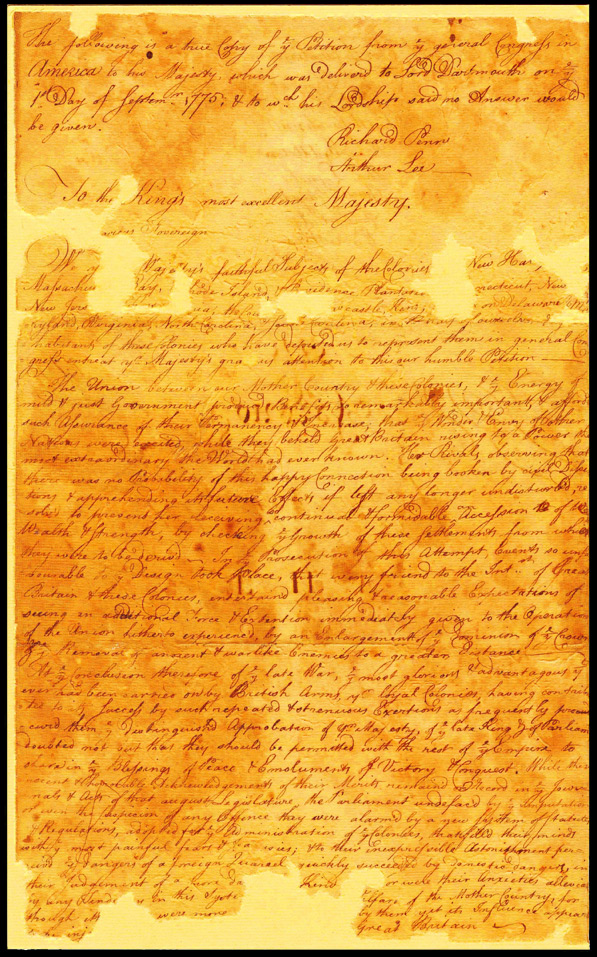 The following is a true Copy of yͤ Petition from yͤ general Congress in
America to his Majesty which was deliverd to Lord Dartmouth on yͤ
1st Day of Septemr 1775, & to wch his Lordship said no Answer would
be given.
Richard Penn
Arthur Lee
To the King's most excellent Majesty.
Sovereign
Majesty's faithful Subjects of the Colonies New Ham
Massachus Bay, Island, Providence Plantation necticut, New
New Jers castle, Kent, on Delaware
Virginia, North Carolina, Carolina, in
of these Colonies who have deputed us to represent them in general Con
entreat yr Majesty's attention to this our humble Petition
The Union between our Mother Country & these Colonies, & yͤ Energy of
mild & just Government produced Benefits so remarkably important, & afford
such Assurance of their Permanency & Increase, that yͤ Wonder & Envy of other
Nations were excited, while they beheld Great Britain rising to a Power the
most extraordinary the World had ever known. Her Rivals observing that
there was no Probability of this happy Connection being broken by civil Disse
tions & apprehending its future Effects if left any longer undisturbed, re
solvd to prevent her receiving continual & formidable Accession of
Wealth & Strength, by checking yͤ Growth of these Settlements from which
they were to be derived In yͤ Prosecution of this Attempt, Events so unf
vourable to yͤ Design took place, that every friend to the Intst of Great
Britain & these Colonies, entertaind pleasing & reasonable Expectations of
seeing an additional Force & Extention immediately given to the Operations
of the Union hitherto experienced, by an Enlargement of yͤ Dominion of yͤ Crown
Removal of ancient & warlike Enemies to a greater Distance
At yͤ Conclusion therefore of yͤ late War, yͤ most glorious & advantageous yt
ever had been carried on by British Arms, yr loyal Colonies, having contribu
ted to its Success by such repeated & strenuous Exertions as frequently procu
cured them yͤ distinguishd Approbation of yr Majesty, of yͤ late King & of Parliam
doubted not but that they should be permitted with the rest of yͤ Empire to
share in yͤ Blessings of Peace & Emoluments of Victory & Conquest. While these
recent & honorable Acknowledgements of their Merits remained on Record in yͤ Jour
nals & Acts of that august Legislature the Parliament undefaced by yͤ Imputation
or even the suspicion of any Offence they were alarmed by a new System of Statutes
& Regulations, adopted for yͤ Administration of yͤ Colonies, that filled their minds
with yͤ most painful fears & & to their inexpressible Astonishment per
ceived yͤ dangers of a foreign Quarrel quickly succeeded by domestic dangers, in
their Judgement of a more da Kind or were their Anxieties alleviated
by any in this Syste lfare of the Mother Country, for
though its were more by them yet its Influence appeared
Great Britain